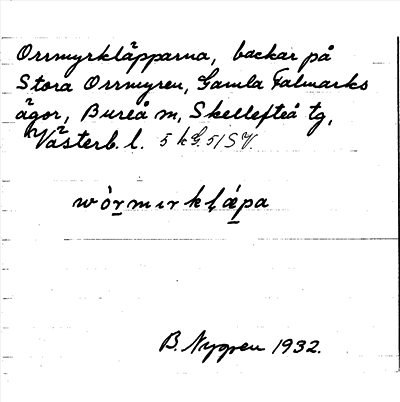 Orrmyrkläpparna, backar på
Stora Orrmyren, Gamla Falmarks
ägor, Bureå m, Skellefteå tg,
Västerb. l. 5 k G. 51 SV.
wòrmırkļǽpa
B. Nygren 1932.